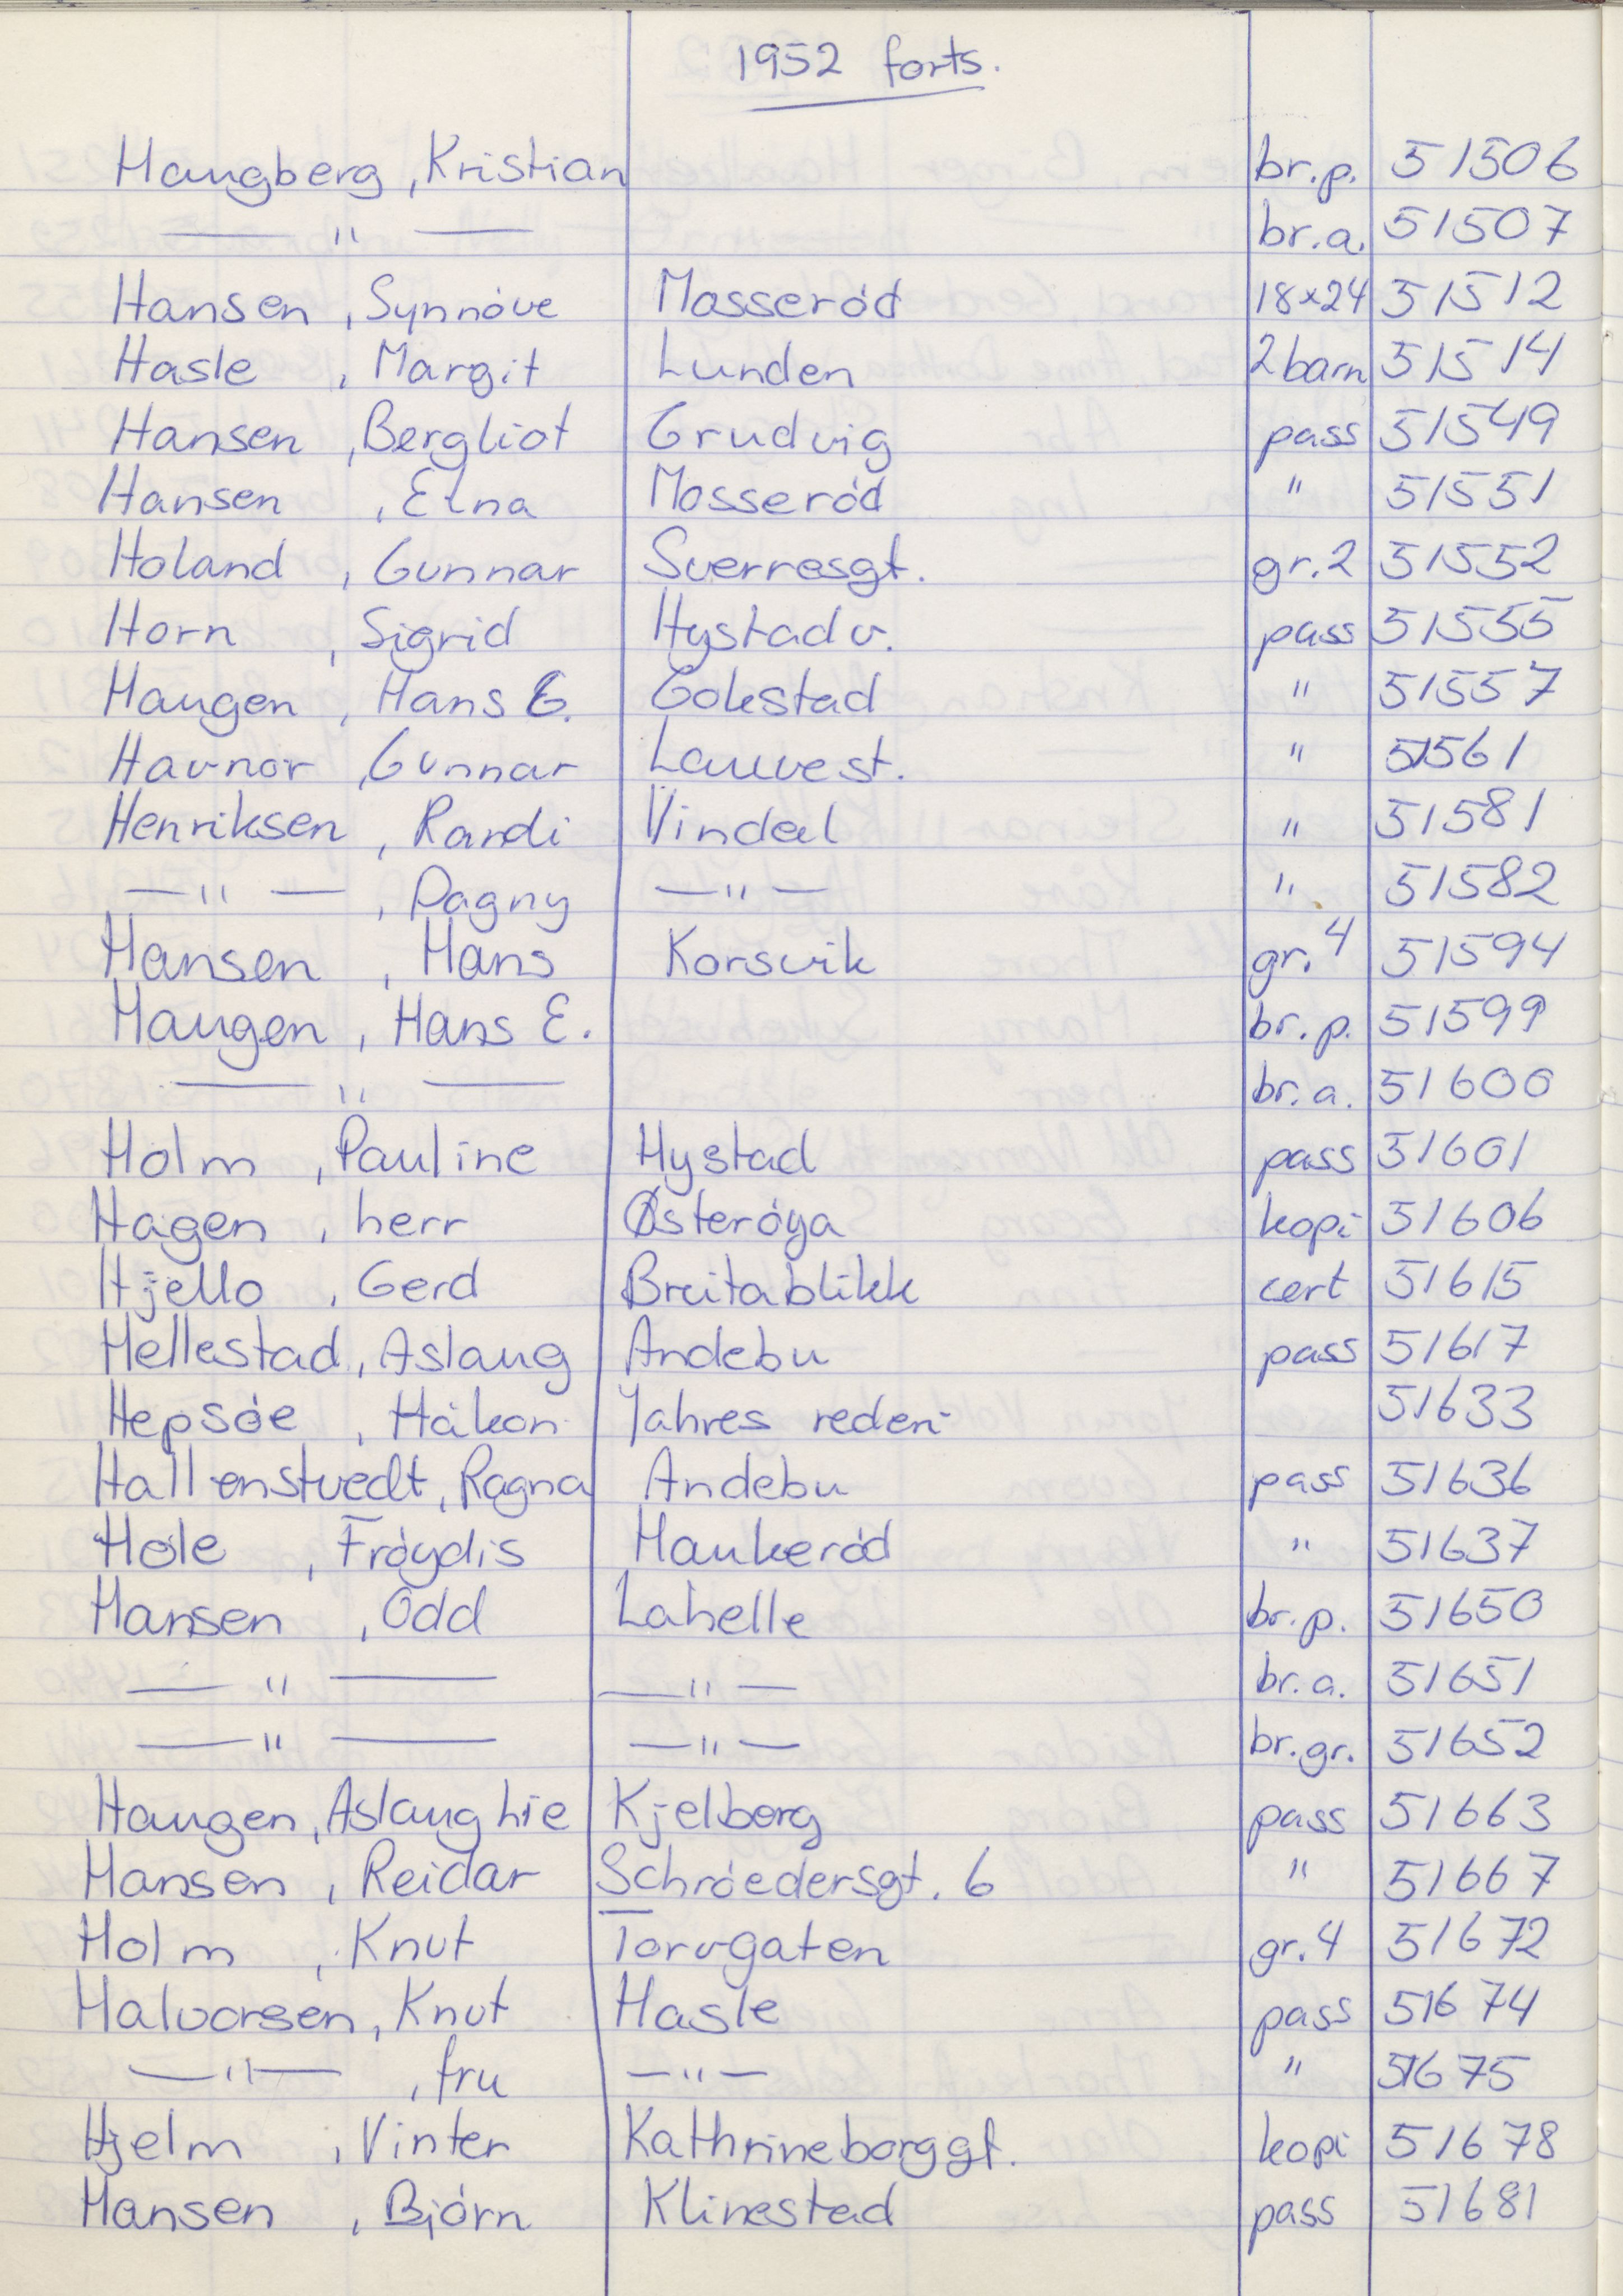 1952 forts.
Haugberg, Kristian br.p. 51506
— " — br.a. 51507
Hansen, Synnóve Mosseród 18x24 51512
Hasle, Margit Lunden 2 barn 51514
Hansen, Bergliot Grudvig pass 51549
Hansen, Elna Mosseród " 51551
Holand, Gunnar Sverresgt. gr.2 51552
Horn, Sigrid Hystadv. pass 51555
Haugen, Hans E. Gokstad " 51557
Havnor, Gunnar Lauvest. " 51561
Henriksen, Randi Vindal " 51581
— " —, Dagny — " — " 51582
Hansen, Hans Korsvik gr. 4 51594
Haugen, Hans E. br.p. 51599
— " — br.a. 51600
Holm, Pauline Hystad pass 51601
Hagen, herr Østeróya kopi 51606
Hjello, Gerd Breitablikk cert 51615
Hellestad, Aslaug Andebu pass 51617
Hepsóe, Håkon Jahres rederi 51633
Hallenstvedt, Ragna Andebu pass 51636
Hóle, Fróydis Haukeród " 51637
Hansen, Odd Lahelle br.p. 51650
— " — — " — br.a. 51651
— " — — " — br.gr. 51652
Haugen, Aslaug hie Kjelberg pass 51663
Hansen, Reidar Schróedersgt. 6 " 51667
Holm, Knut Torvgaten gr.4 51672
Halvorsen, Knut Hasle pass 51674
— " —, fru — " — " 51675
Hjelm, Vinter Kathrineborggt. kopi 51678
Hansen, Bjórn Klinestad pass 51681